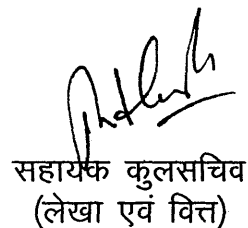 सहायक कुलसचिव
(लेखा एवं वित्त)